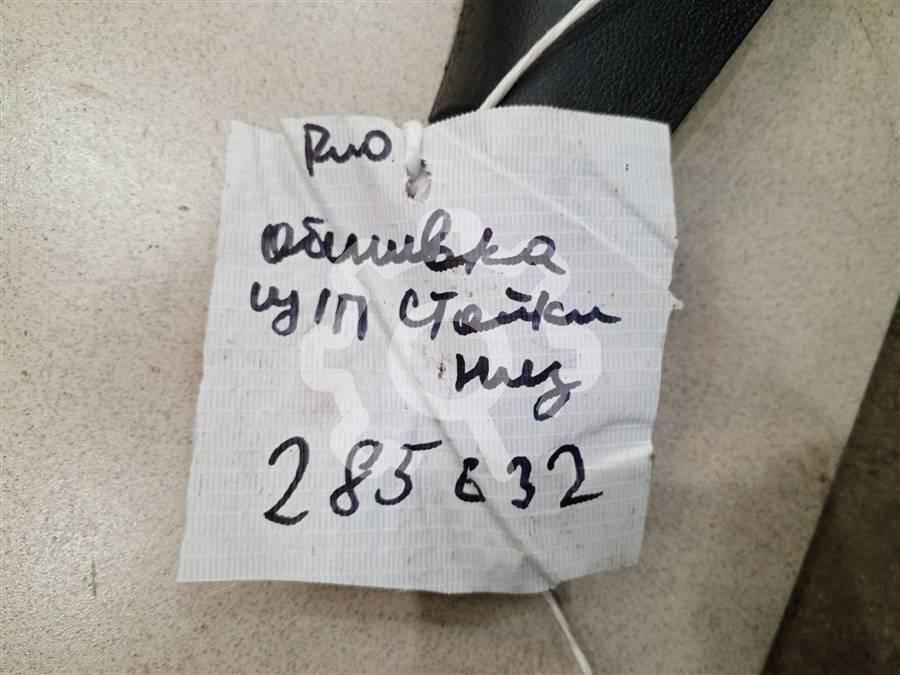 Rio
обшивка
ц/п стойки
низ
285632